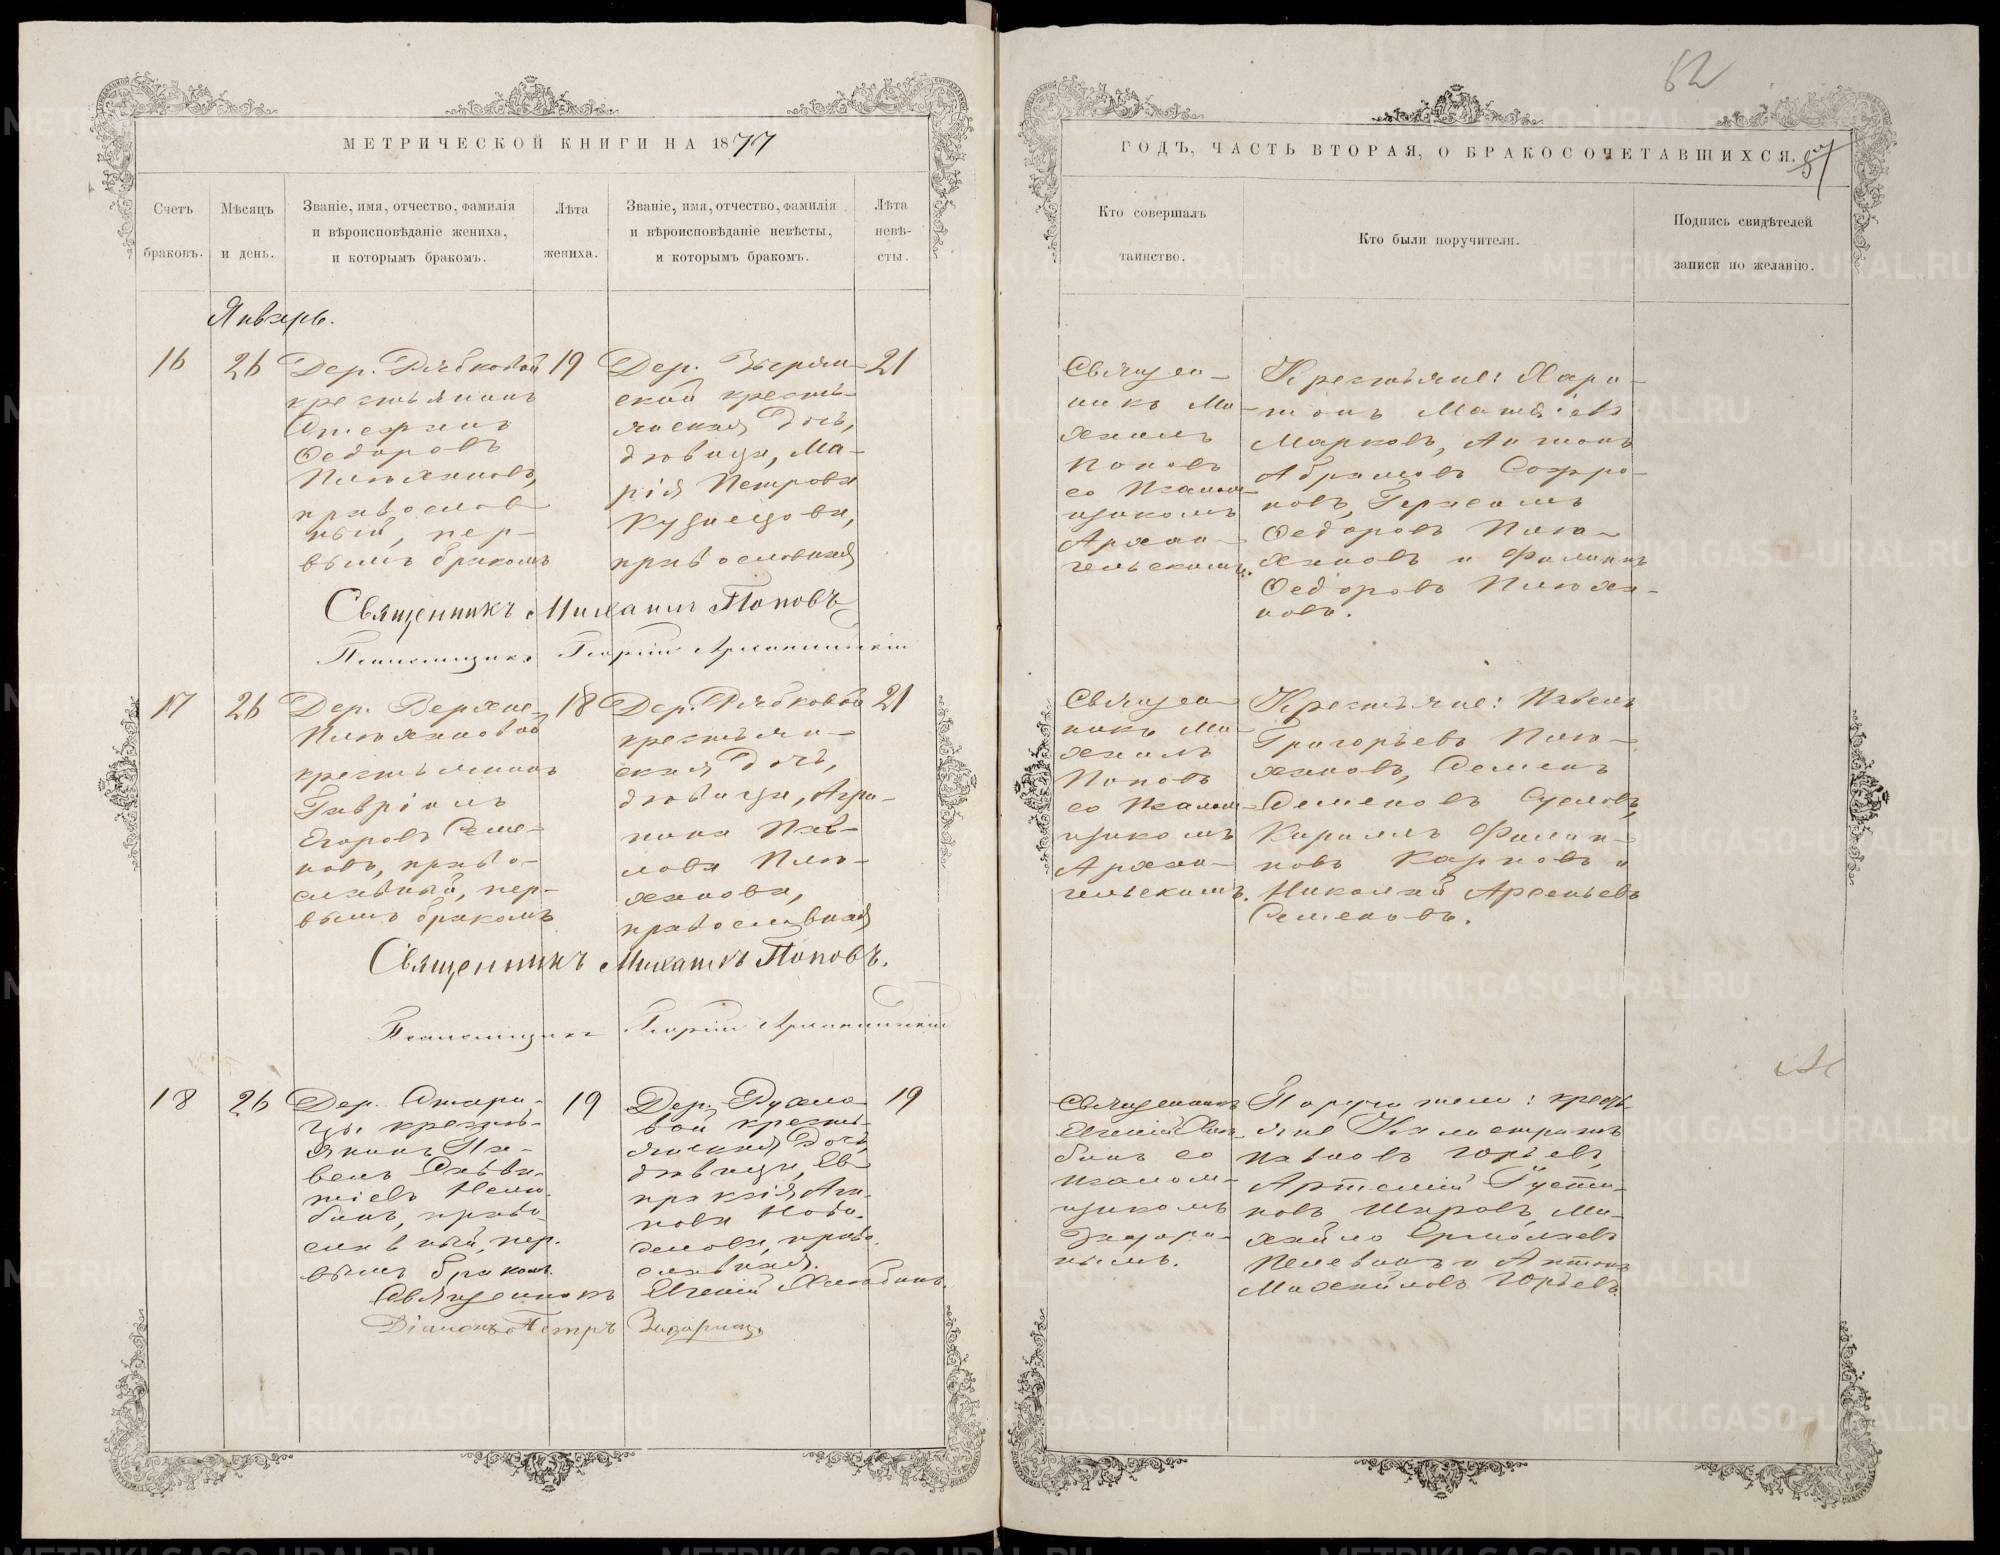 МЕТРИЧЕСКОЙ КНИГИ НА 1877
Счетъ браковъ.
Мѣсяцъ и день.
Званіе, имя, отчество, фамилія
и вѣроисповѣданіе жениха,
и которымъ бракомъ.
Лѣта жениха.
Званіе, имя, отчество, фамилія
и вѣроисповѣданіе невѣсты,
и которымъ бракомъ.
Лѣта невѣ-
сты.
Январь.
16
26
Дер. Рябковой
крестьянинъ
Стефанъ
Федоровъ
Плюхановъ,
православ
ный, пер-
вымъ бракомъ
19
Дер.
ской кресть-
янская дочь,
дѣвица, Ма-
рія Петрова
Кузнецова,
православная
21
Священникъ Михаилъ Поповъ
Псаломщикъ Георгій Архангельскій
17
26
Дер. Верхне-
Плюхановой
крестьянинъ
Гавріилъ
Егоровъ Семе-
новъ, право-
славный, пер-
вымъ бракомъ
18
Дер. Рябковой
крестьян-
ская дочь,
дѣвица, Агри-
пина Пав-
лова Плю-
ханова,
православная
21
Священникъ Михаилъ Поповъ.
Псаломщикъ Георгій Архангельскій
18
26
Дер. Стари-
цы кресть-
янинъ Па-
велъ Савва-
тіевъ
бинъ, право-
славный, пер-
вымъ бракомъ.
19
Дер.
вой кресть-
янская дочь,
дѣвица, Ев-
праксія Ага-
пова Ново-
селова, право-
славная.
19
Священникъ Евгеній Хлѣбинъ.
Діаконъ Петръ
62
ГОДЪ, ЧАСТЬ ВТОРАЯ, О БРАКОСОЧЕТАВШИХСЯ.
Кто совершалъ
таинство.
Кто были поручители.
Подпись свидѣтелей
записи по желанію.
Священ-
никъ Ми-
хаилъ
Поповъ
со Псалом-
щикомъ
Архан-
гельскимъ.
Крестьяне: Хари-
тонъ Матвѣевъ
Марковъ, Антонъ
Абрамовъ Софро-
новъ, Герасимъ
Федоровъ Плю-
хановъ и Филиппъ
Федоровъ Плюха-
новъ.
Священ-
никъ Ми-
хаилъ
Поповъ
со Псалом-
щикомъ
Архан-
гельскимъ.
Крестьяне: Павелъ
Григорьевъ Плю-
хановъ, Семенъ
Семеновъ Сусловъ,
Кириллъ Филип-
повъ Карповъ и
Николай Арсеньевъ
Семеновъ.
Священникъ
Евгеній Хлѣ-
бинъ со
псалом-
щикомъ
нымъ.
Поручители: кресть-
яне Калистратъ
Павловъ Юрьевъ,
Артемій Густи-
новъ Шировъ, Ми-
хайло Ермолаевъ
Пелевинъ и Антонъ
Михайловъ Юрьевъ.
METRIKI.GASO-URAL.RU